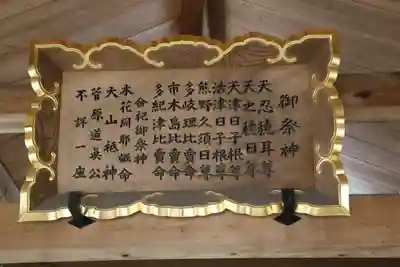 御祭神
天忍穂耳尊
天之穂日尊
天津日子根尊
活津日子根尊
熊野久須日尊
多岐理比賣命
市木島比賣命
多紀津比賣命
合祀御祭神
木花開耶姫命
大山祇神
菅原道真公
不詳一座